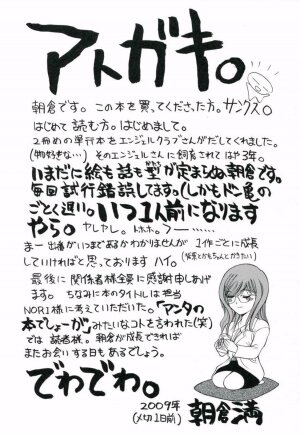 アトガキ。
朝倉です。この本を買ってくださった方。サンクス。
はじめて読む方。はじめまして。
2冊めの単行本をエンジェルクラブさんがだしてくれました。
(物好きな…) そのエンジェルさんに飼育されてはや3年。
いまだに絵も話も型が定まらぬ朝倉です。
毎回試行錯誤してます。(しかもドン亀の
ごとく遅い)。いつ1人前になります
やら。ヤレヤレ。トホホ。フー……
まー出番がいつまであるかわかりませんが1作ごとに成長
していければと思っております ハイ。
最後に関係者様全員に感謝申しあげ
ます。ちなみに本のタイトルは担当
NORI様に考えていただいた。「アンタの
本でしょーが」みたいなコトを言われた(笑)
では読者様。朝倉が成長できれば
またお会いする日もあるでしょう。
でわでわ。
2009年
(〆切1日前)
朝倉満